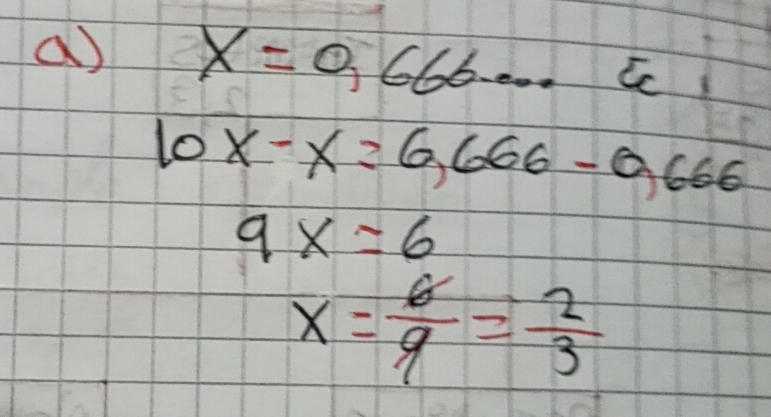 a) x = 0,666....
10x - x = 6,666 - 0,666
9x = 6
x = 6/9 = 2/3